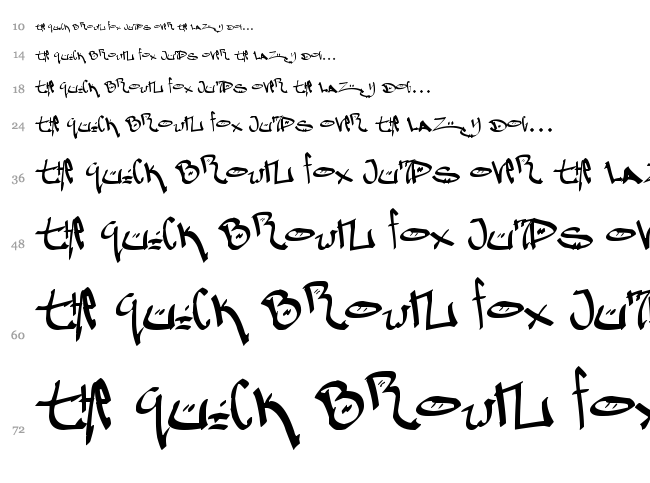 10 the quick brown fox jumps over the lazy dog...
14 the quick brown fox jumps over the lazy dog...
18 the quick brown fox jumps over the lazy dog...
24 the quick brown fox jumps over the lazy dog...
36 the quick brown fox jumps over the la
48 the quick brown fox jumps ov
60 the quick brown fox jum
72 the quick brown fo